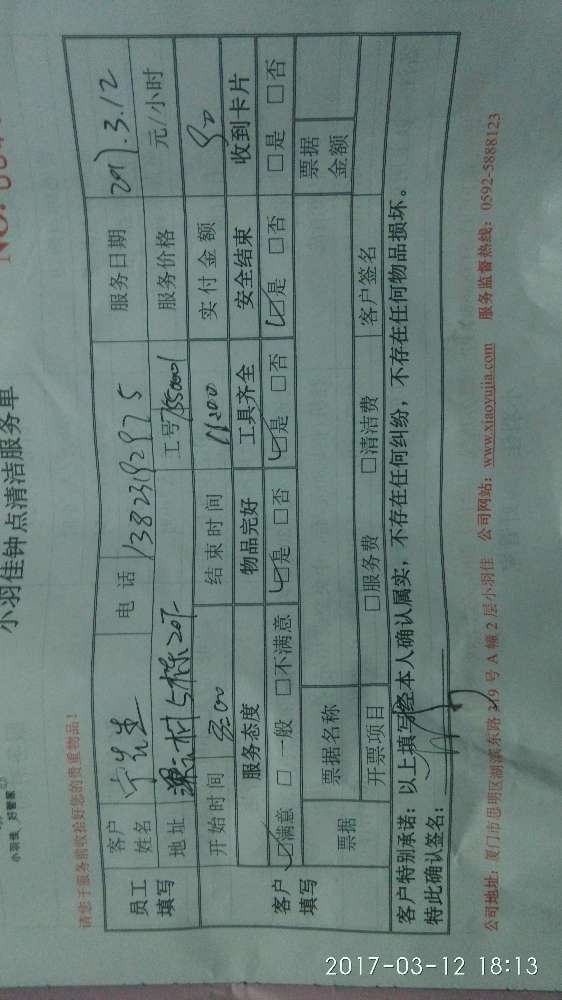 小羽佳 好管家
小羽佳钟点清洁服务单
NO:
请您于服务前收拾好您的贵重物品!
员工填写 客户姓名 电话 13823192975 服务日期 2017.3.12
地址 工号 服务价格 元/小时
开始时间 结束时间 实付金额
客户填写 服务态度 物品完好 工具齐全 安全结束 收到卡片
☑满意 □一般 □不满意 ☑是 □否 ☑是 □否 ☑是 □否 □是 □否
票据 票据名称 票据金额
开票项目 □服务费 □清洁费 客户签名
客户特别承诺:以上填写经本人确认属实,不存在任何纠纷,不存在任何物品损坏。
特此确认签名:
公司地址:厦门市思明区湖滨东路319号A幢2层小羽佳 公司网站:www.xiaoyujia.com 服务监督热线:0592-5888123
2017-03-12 18:13